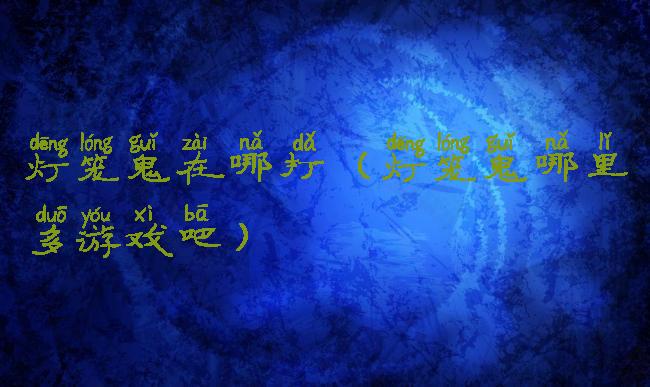 dēng lóng guǐ zài nǎ dǎ dēng lóng guǐ nǎ lǐ
灯笼鬼在哪打（灯笼鬼哪里
duō yóu xì bā
多游戏吧）